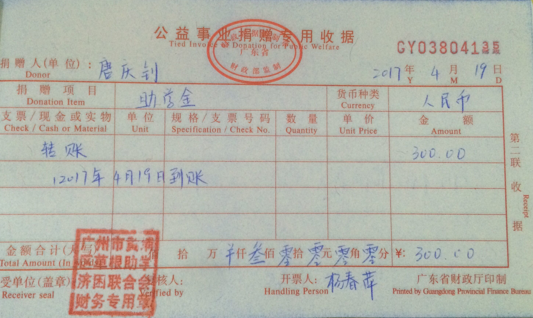 公益事业捐赠专用收据
Tied Invoice of Donation for Public Welfare
广东省
财政部监制
GY03804135
捐赠人(单位): 唐庆钊
Donor
2017年 4月 19日
Y M D
捐赠项目 助学金 货币种类 人民币
Donation Item Currency
支票/现金或实物 单位 规格/支票号码 数量 单价 金额
Check / Cash or Material Unit Specification / Check No. Quantity Unit Price Amount
转账 300.00
2017年4月19日到账
第二联 收据
Receipt
金额合计( 拾 万 仟叁佰零拾零元零角零分 ¥: 300.00
Total Amount (In
受单位(盖章) 核人: 开票人: 杨春萍 广东省财政厅印制
Receiver seal Verified by Handling Person Printed by Guangdong Provincial Finance Bureau
广州市
区革根助学
济困联合会
财务专用章